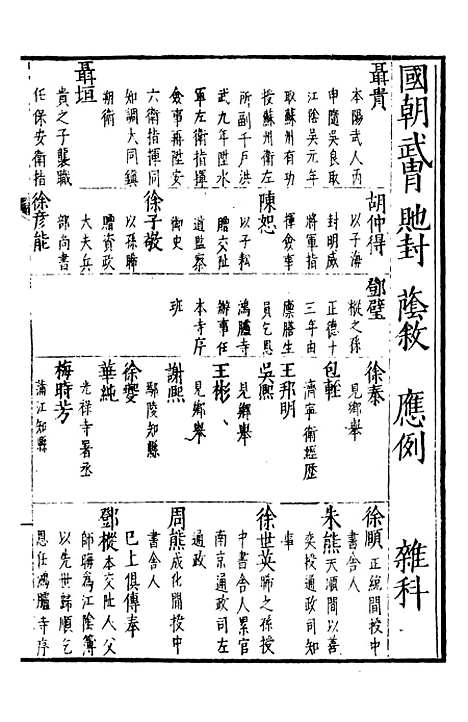 國朝武冑 貤封 蔭敘 應例 雜科
聶貴
本陽武人丙
申隨吳良取
江陰吳元年
取蘇州有功
授蘇州衛左
所副千戶洪
武九年陞水
軍左衛指揮
僉事再陞安
六衛指揮同
知調大同鎮
朔衛
聶垣
貴之子襲職
任保安衛指
胡仲得
以子海
封明威
將軍指
揮僉事
陳恕
以子
贈交阯
道監察
御史
徐子敬
以孫聯
贈資政
大夫兵
部尚書
徐彥能
鄧璧
樅之孫
正德十
三年由
廩膳生
員乞恩
鴻臚寺
辦事任
本寺序
班
徐泰
見鄉舉
包輕
濟寧衛經歷
王邦明
吳熙
見鄉舉
王彬、
見鄉舉
謝熙
鄢陵知縣
徐夔
華純
光祿寺署丞
梅時芳
蒲江知縣
徐順 正統間授中
書舍人
朱熊 天順間以善
奕授通政司知
事
徐世英 聯之孫授
中書舍人累官
南京通政司左
通政
周熊 成化間授中
書舍人
已上俱傳奉
鄧樅 本交阯人父
師誨為江陰簿
以先世歸順乞
恩任鴻臚寺序